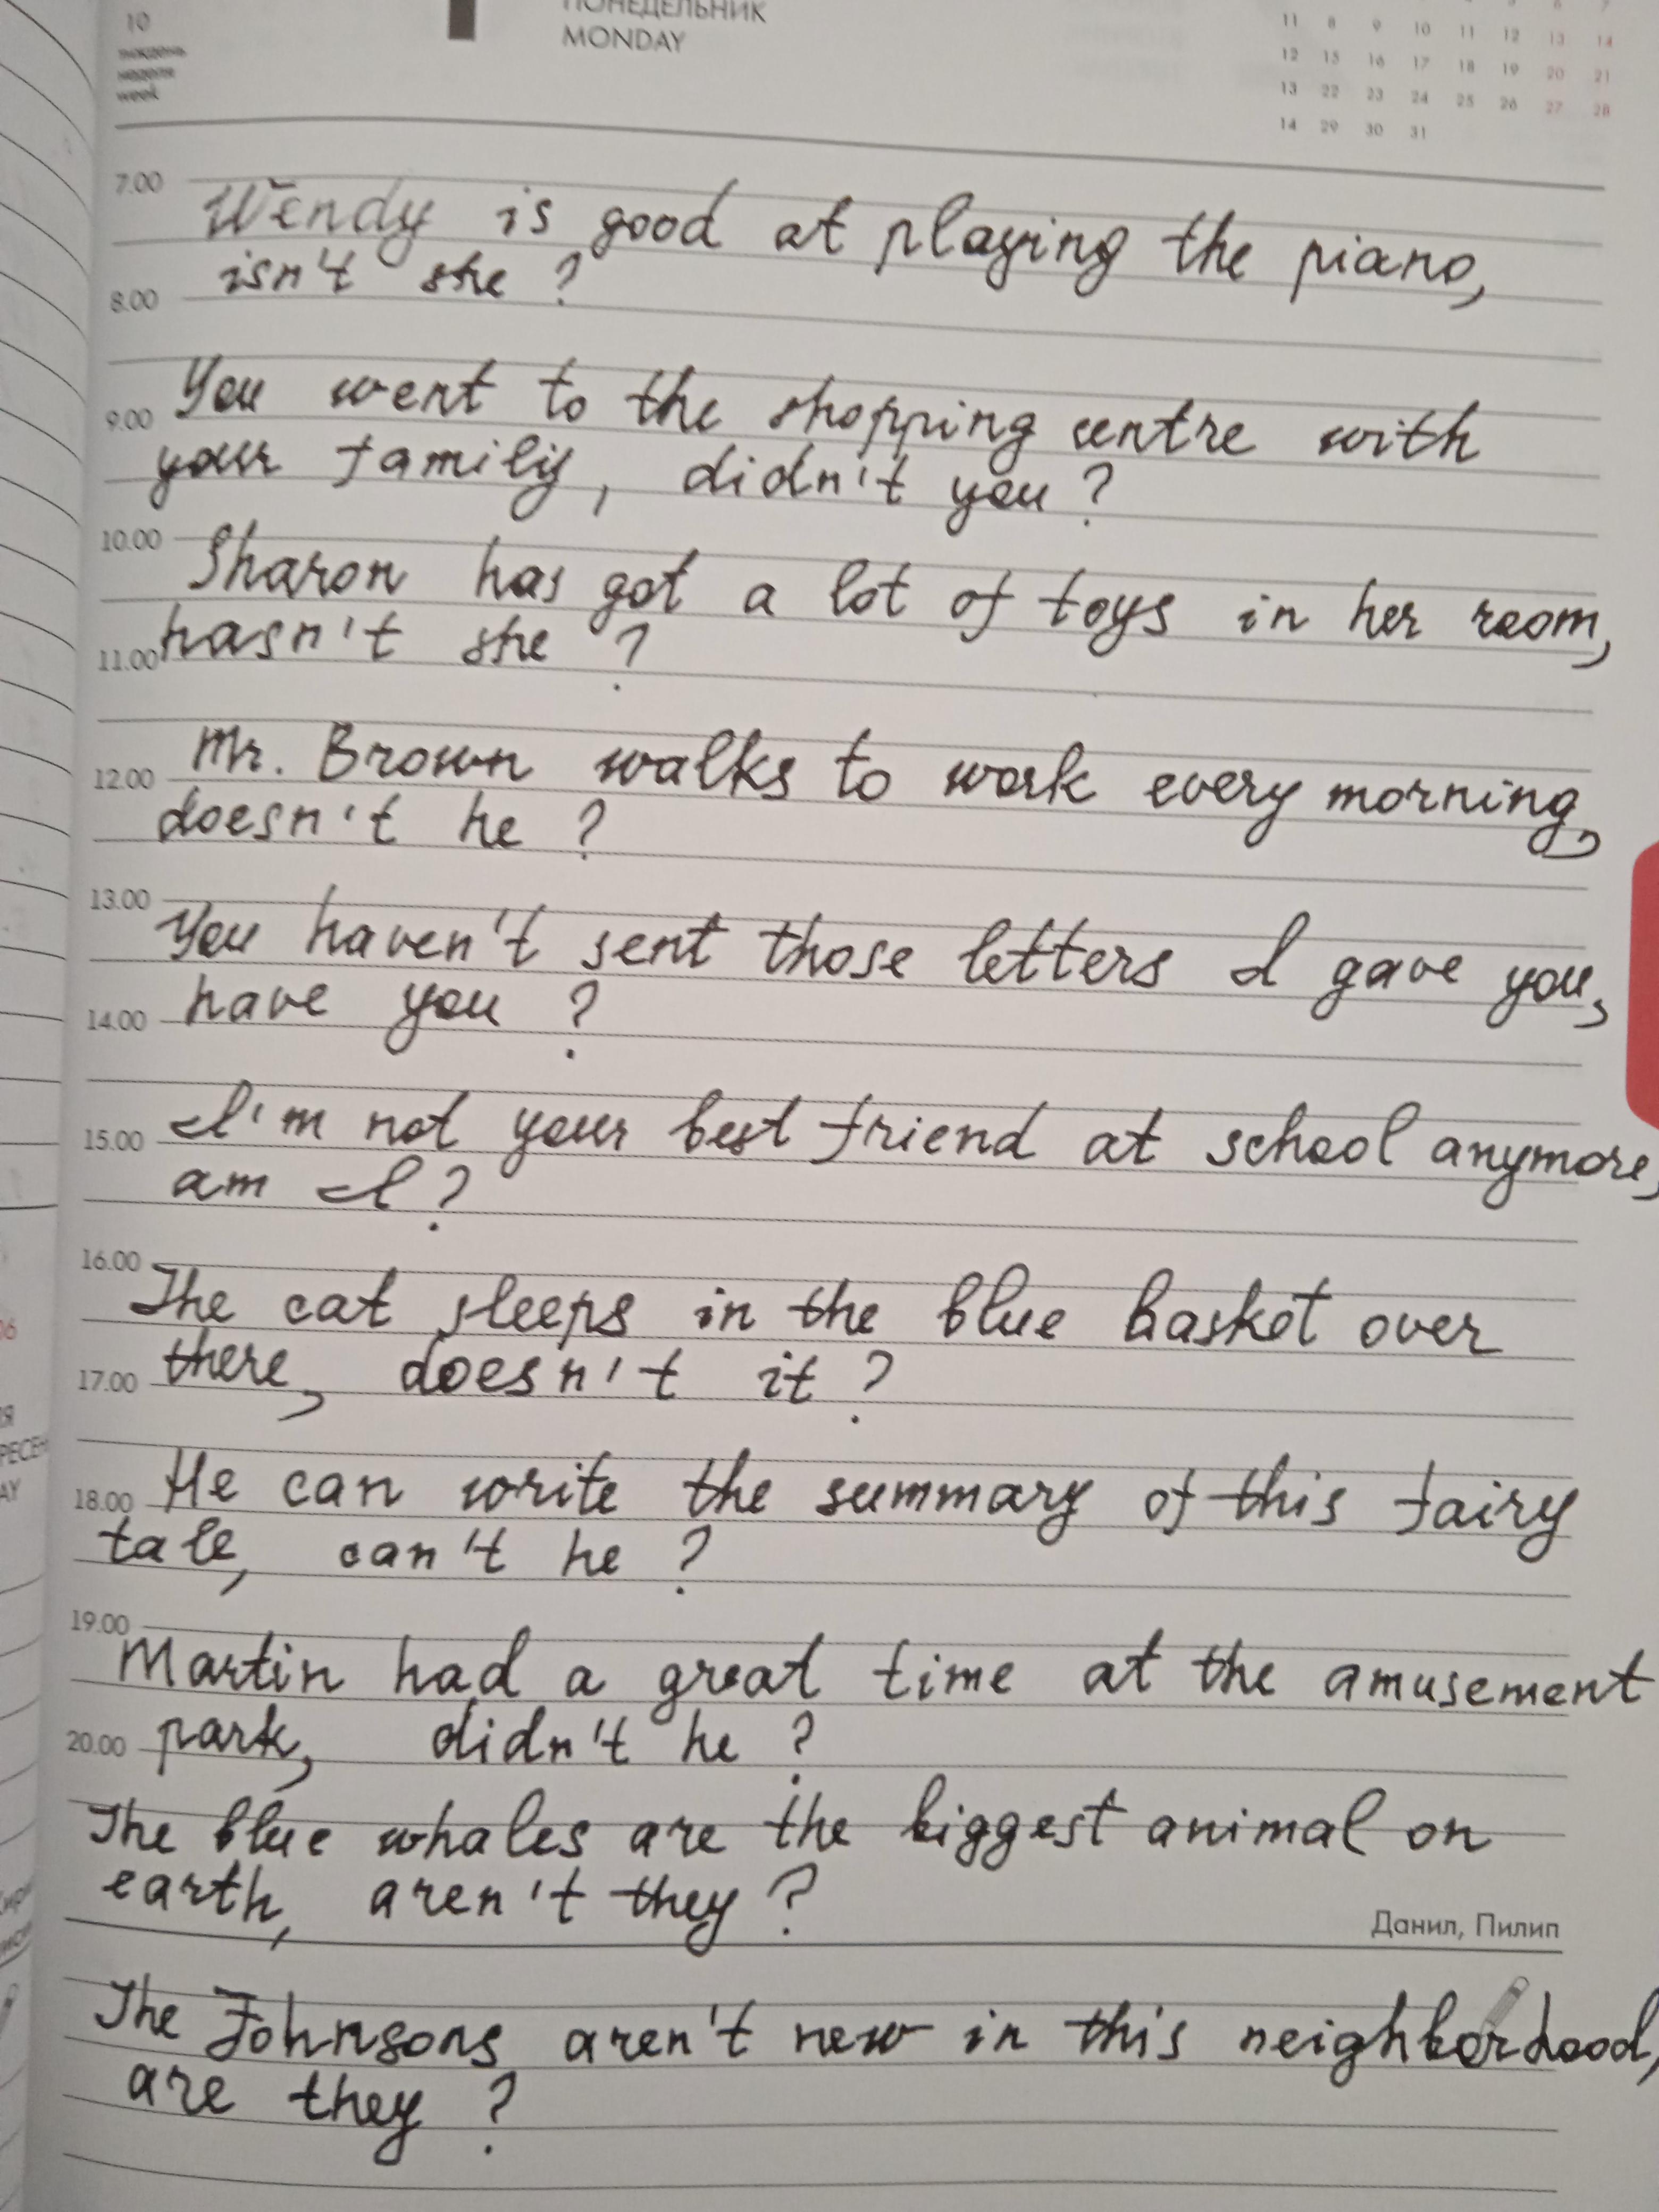 10
тиждень
неделя
week
ПОНЕДЕЛЬНИК
MONDAY
11 8 9 10 11 12 13 14
12 15 16 17 18 19 20 21
13 22 23 24 25 26 27 28
14 29 30 31
7.00
Wendy is good at playing the piano,
isn't she ?
8.00
You went to the shopping centre with
9.00
your family, didn't you ?
10.00
Sharon has got a lot of toys in her room,
hasn't she ?
11.00
Mr. Brown walks to work every morning,
12.00
doesn't he ?
13.00
You haven't sent those letters I gave you,
have you ?
14.00
I'm not your best friend at school anymore,
15.00
am I ?
16.00
The cat sleeps in the blue basket over
there, doesn't it ?
17.00
He can write the summary of this fairy
18.00
tale, can't he ?
19.00
Martin had a great time at the amusement
park, didn't he ?
20.00
The blue whales are the biggest animal on
earth, aren't they ?
Данил, Пилип
The Johnsons aren't new in this neighborhood,
are they ?